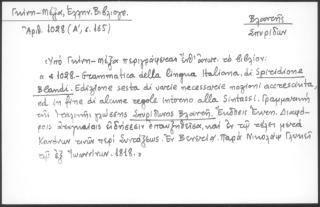 Γκίνη-Μέξα, Ἑλλην. Βιβλιογρ.
Βλαντής
Ἀρ. 1028 (Α', σ. 165)
Σπυρίδων
Ὑπὸ Γκίνη-Μέξα περιγράφεται ὑπ' ἀριθ. τὸ βιβλίον:
« 1028 - Grammatica della lingua Italiana, di Spiridione
Blandi. Edizione sesta di varie necessarie nozioni accresciuta,
ed in fine di alcune regole intorno alla Sintassi. Γραμματικὴ
τῆς Ἰταλικῆς γλώσσης Σπυρίδωνος Βλαντῆ. Ἔκδοσις Ἕκτη. Διαφό-
ροις ἀναγκαίαις εἰδήσεσιν ἐπαυξηθεῖσα, καὶ ἐν τῷ τέλει μετὰ
Κανόνων τινῶν περὶ Συντάξεως. Ἐν Βενετίᾳ. Παρὰ Νικολάῳ Γλυκεῖ
τῷ ἐξ Ἰωαννίνων. 1818. »